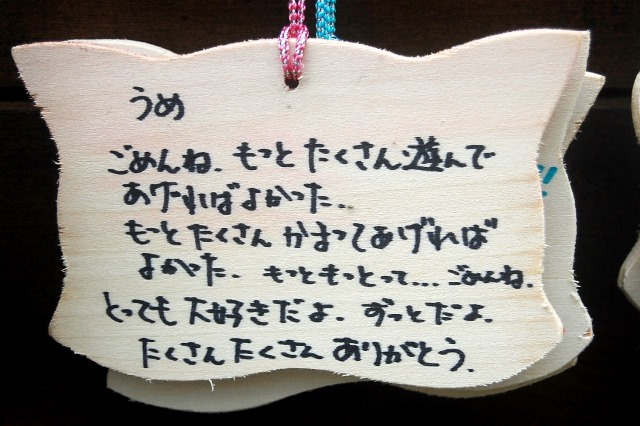 うめ
ごめんね。もっとたくさん遊んで
あげればよかった。
もっとたくさんかまってあげれば
よかった。もっともっとって...ごめんね。
とっても大好きだよ。ずっとだよ。
たくさんたくさんありがとう。